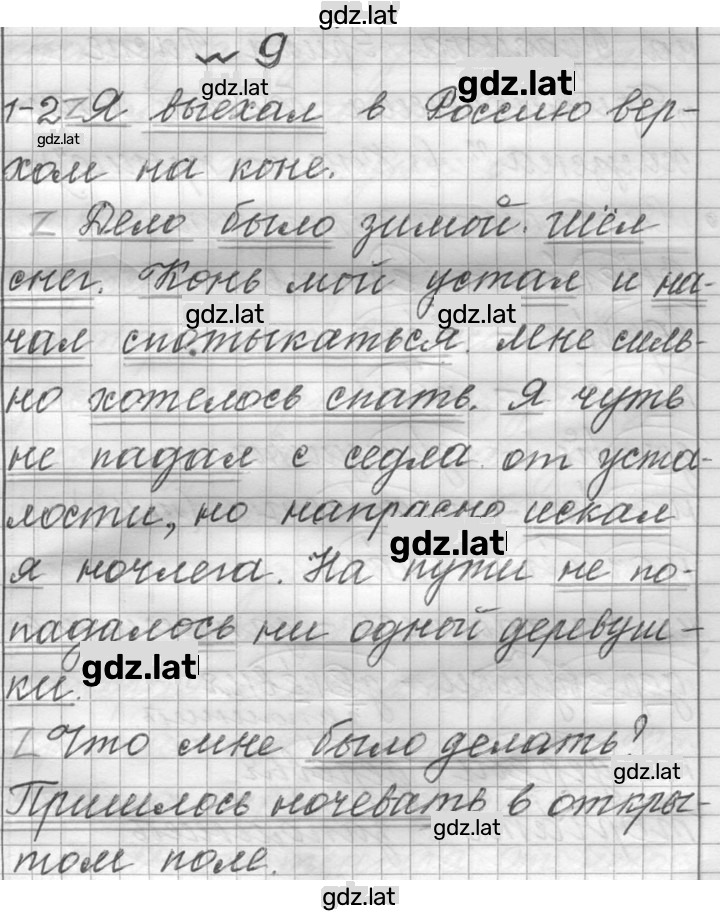 gdz.lat
~ 9
gdz.lat
gdz.lat
1-2 Z Я выехал в Россию вер-
gdz.lat
хом на коне.
Z Дело было зимой. Шёл
снег. Конь мой устал и на-
gdz.lat gdz.lat
чал спотыкаться. Мне силь-
но хотелось спать. Я чуть
не падал с седла от уста-
лости, но напрасно искал
gdz.lat
я ночлега. На пути не по-
падалось ни одной деревуш-
gdz.lat
ки.
Z Что мне было делать?
gdz.lat
Пришлось ночевать в откры-
gdz.lat
том поле.
gdz.lat